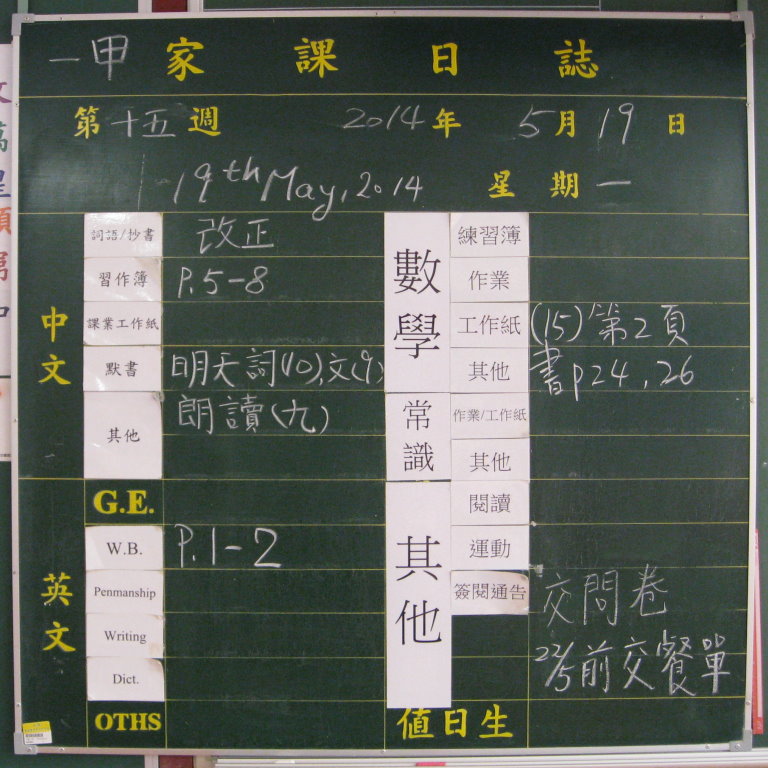 一甲 家課日誌
第十五週 2014年 5月19日
19th May, 2014 星期一
中文
詞語/抄書 改正
習作簿 P.5-8
課業工作紙
默書 明天詞(10),文(9)
其他 朗讀(九)
英文
G.E.
W.B. P.1-2
Penmanship
Writing
Dict.
OTHS
數學
練習簿
作業
工作紙 (15)第2頁
其他 書p24,26
常識
作業/工作紙
其他
其他
閱讀
運動
簽閱通告 交問卷
22/5前交餐單
值日生